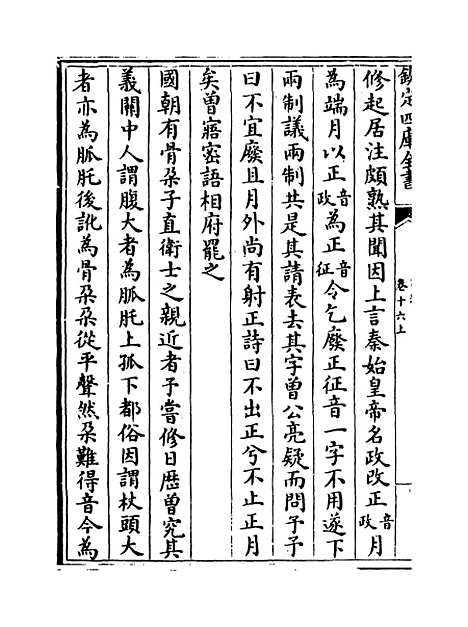 欽定四庫全書
卷十六上
修起居注頗熟其聞因上言秦始皇帝名政改正音政月
為端月以正音政為正音征令乞廢正征音一字不用遂下
兩制議兩制共是其請表去其字曾公亮疑而問予予
曰不宜廢且月外尚有射正詩曰不出正兮不止正月
矣曾寤密語相府罷之
國朝有骨朶子直衛士之親近者予嘗修日歷曾究其
義關中人謂腹大者為胍肫上孤下都俗因謂杖頭大
者亦為胍肫後訛為骨朶朶從平聲然朶難得音今為